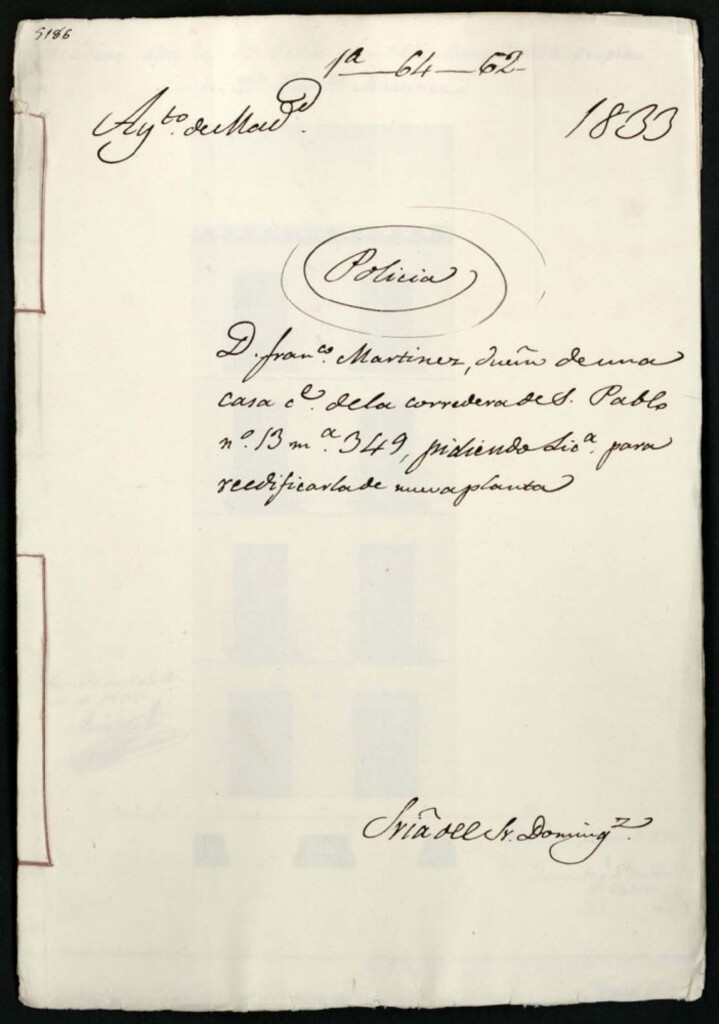 5186
1ª—64—62
Ay.to de Mad.d
1833
Policia
D. fran.co Martinez, dueñ de una
casa c.e de la corredera de S. Pablo
n.o 13 m.a 349, pidiendo Lic.a para
reedificarla de nueva planta
Sriã del Sr. Doming.z